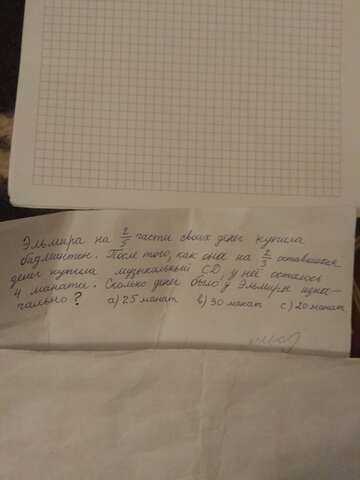 Эльмира на 2/5 части своих денег купила
бадминтон. После того, как она на 2/3 оставшихся
денег купила музыкальный CD, у неё осталось
4 маната. Сколько денег было у Эльмиры изна-
чально? a) 25 манат b) 30 манат c) 20 манат